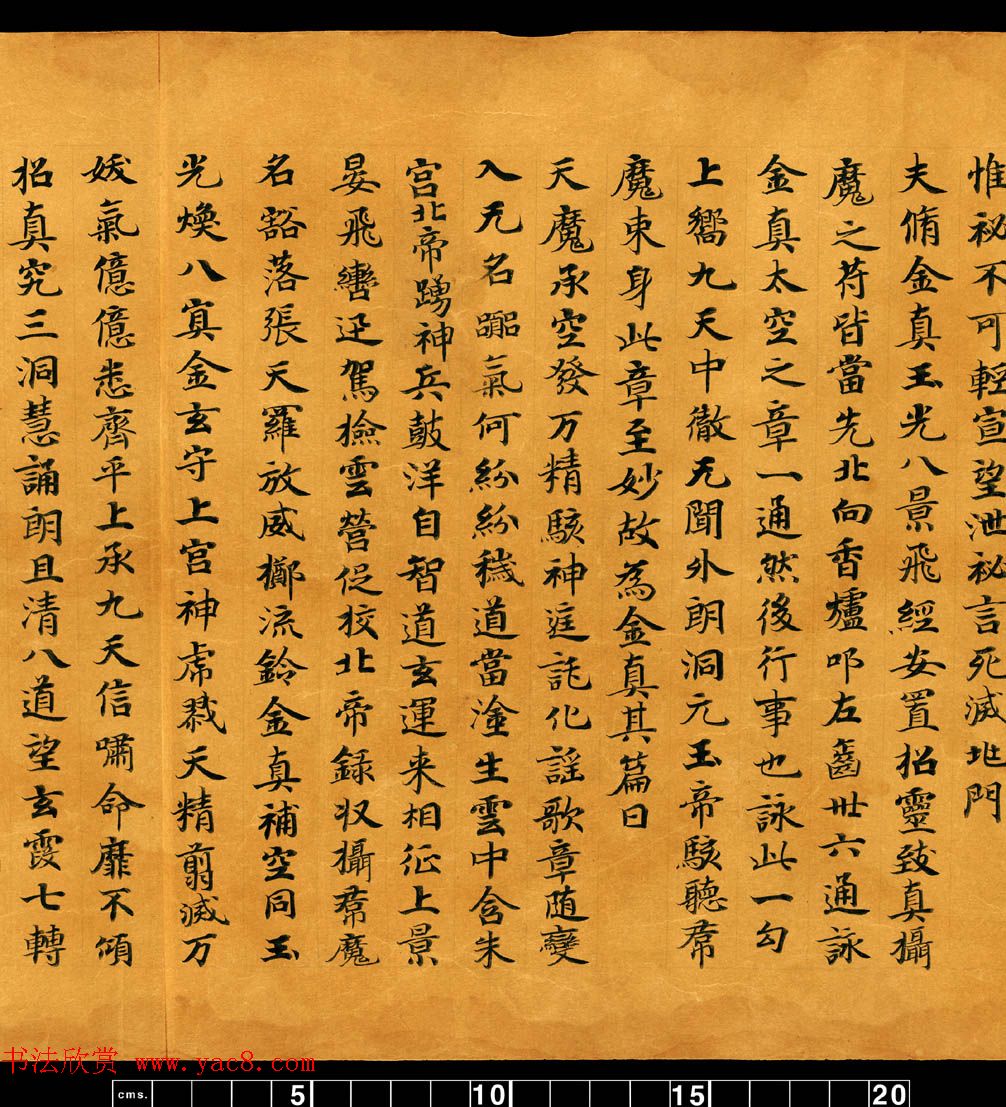 惟祕不可輕宣望泄祕言死滅地門
夫脩金真玉光八景飛經安置招靈致真攝
魔之苻皆當先北向香爐叩左齒卅六通詠
金真太空之章一通然後行事也詠此一句
上嚮九天中徹无聞外朗洞元玉帝駭聽羣
魔束身此章至妙故為金真其篇曰
天魔承空發万精駭神庭託化謡歌章随變
入无名躡氣何紛紛穢道當塗生雲中含朱
宫北帝踴神兵鼓洋自智道玄運来相征上景
晏飛轡迅駕撿雲營促校北帝録収攝羣魔
名豁落張天羅放威擲流鈴金真補空同玉
光煥八冥金玄守上宫神虎戮天精翦滅万
妖氣億億悉齊平上承九天信嘯命靡不傾
招真究三洞慧誦朗且清八道望玄霞七轉
书法欣赏 www.yac8.com
cms. 5 10 15 20